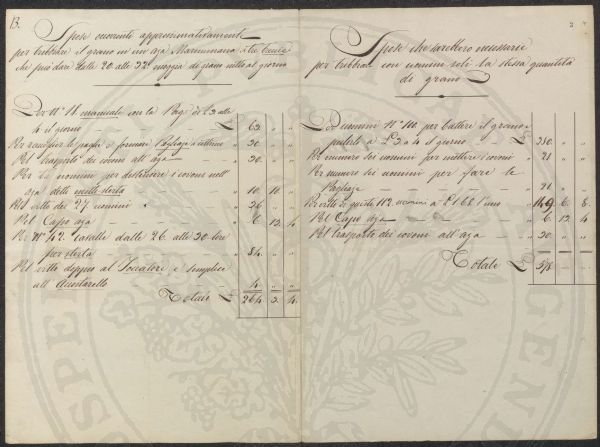 B.
Spese occorrenti approssimativamente
per trebbiare il grano in un aja Maremmana a tre
che può dare dalle 20 alle 22 moggia di grano netto al giorno
Per N° 18 manuali con la Paga di £ 3 alle
4 il giorno £ 62 " "
Per raccoglier la paglia e formare Pagliajo " 30 " "
Pel trasporto dei covoni all' aja " 20 " "
Per uomini per i covoni nell'
aja detti " 10 10 "
Pel vitto dei 27 uomini " 36 " "
Pel Capo aja " 6 13 4
Per N° 42. cavalle dalle 26. alle 30 lire
per " 84 " "
Pel vitto doppio al e simplice
all' " 4 " "
Totale £ 264. 3. 4.
2
Spese che sarebbero necessarie
per trebbiare con uomini soli la stessa quantità
di grano
Per uomini N° 100 per battere il grano e
pulirlo a £ 3 a 4 il giorno £ 350 " "
Per numero sei uomini per mettere i covoni " 21 " "
Per numero sei uomini per fare le
Pagliaje " 21 " "
Per vitto di questi 112 uomini a £ 1.6.8 l'uno " 149 6 8
Pel Capo aja " 6 13 4
Pel trasporto dei covoni all' aja " 30 " "
Totale £ 578 - -